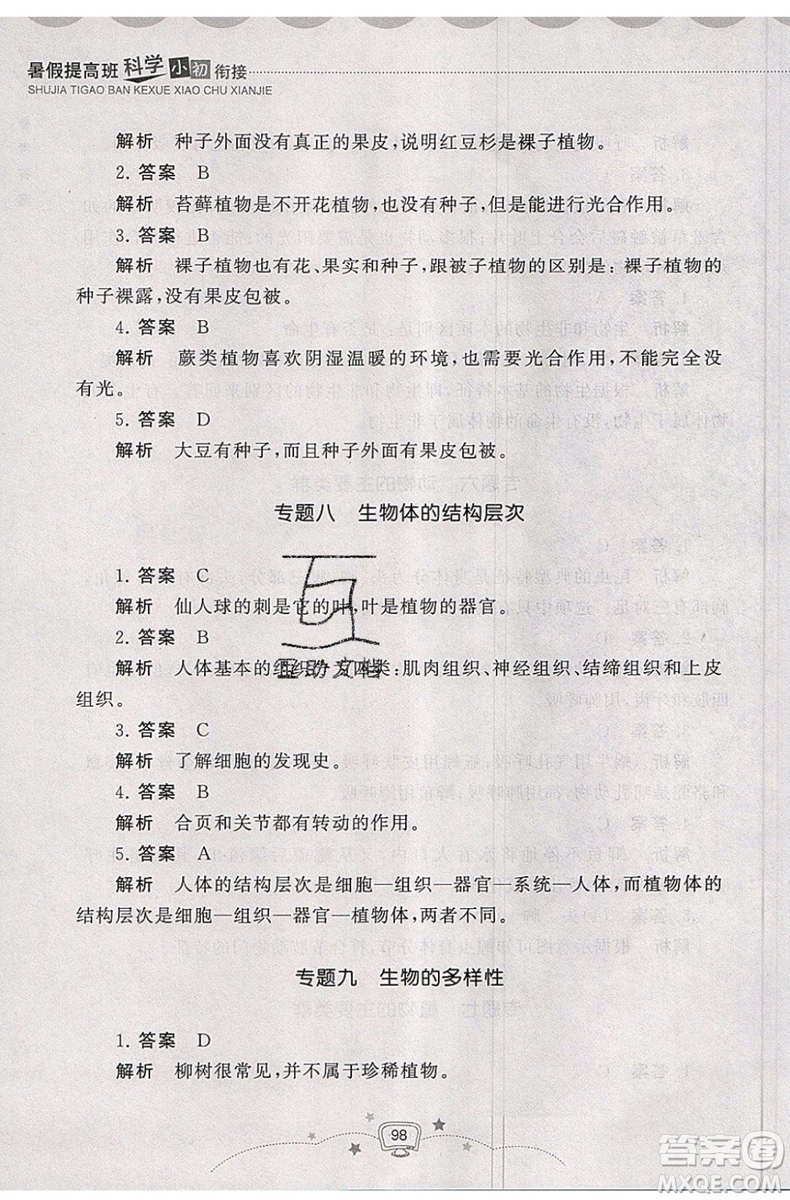 暑假提高班 科学 小初 衔接
SHUJIA TIGAO BAN KEXUE XIAO CHU XIANJIE
解析 种子外面没有真正的果皮，说明红豆杉是裸子植物。
2. 答案 B
解析 苔藓植物是不开花植物，也没有种子，但是能进行光合作用。
3. 答案 B
解析 裸子植物也有花、果实和种子，跟被子植物的区别是：裸子植物的
种子裸露，没有果皮包被。
4. 答案 B
解析 蕨类植物喜欢阴湿温暖的环境，也需要光合作用，不能完全没
有光。
5. 答案 D
解析 大豆有种子，而且种子外面有果皮包被。
专题八 生物体的结构层次
1. 答案 C
解析 仙人球的刺是它的叶，叶是植物的器官。
2. 答案 B
解析 人体基本的组织分为四类：肌肉组织、神经组织、结缔组织和上皮
组织。
3. 答案 C
解析 了解细胞的发现史。
4. 答案 B
解析 合页和关节都有转动的作用。
5. 答案 A
解析 人体的结构层次是细胞—组织—器官—系统—人体，而植物体的
结构层次是细胞—组织—器官—植物体，两者不同。
专题九 生物的多样性
1. 答案 D
解析 柳树很常见，并不属于珍稀植物。
98
互助文档
答案圈
MXQE.COM